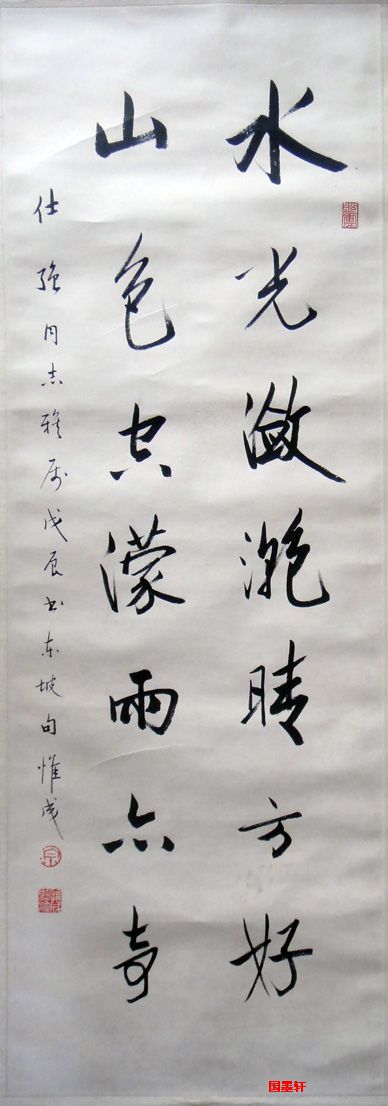 水光潋滟晴方好
山色空濛雨亦奇
仕强同志雅属戊辰书东坡句惟成
国墨轩